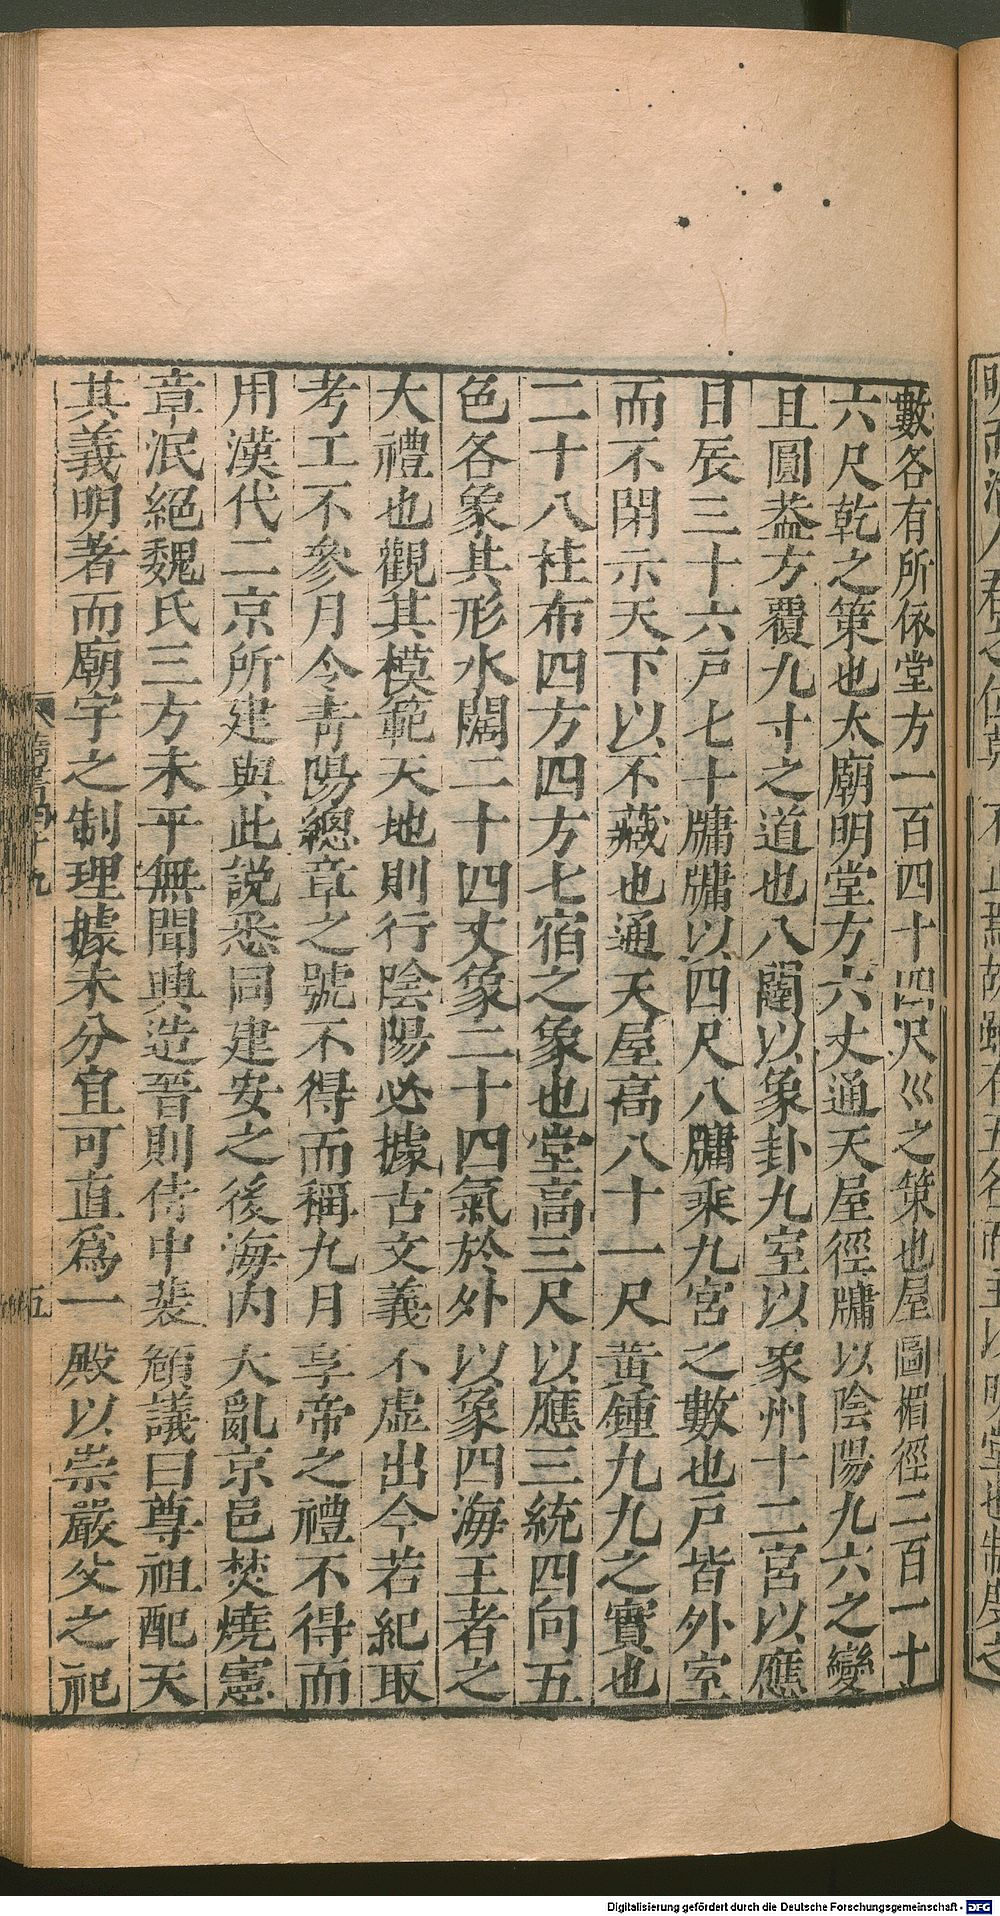 數各有所依堂方一百四十四尺巛之策也屋圓楣徑二百一十
六尺乾之策也太廟明堂方六丈通天屋徑牗以陰陽九六之變
且圓葢方覆九寸之道也八闥以象卦九室以象州十二宮以應
日辰三十六戸七十牗牗以四尺八牗乘九宮之數也戸皆外室
而不閉示天下以不藏也通天屋高八十一尺黃鍾九九之實也
二十八柱布四方四方七宿之象也堂高三尺以應三統四向五
色各象其形水闊二十四丈象二十四氣於外以象四海王者之
大禮也觀其模範天地則行陰陽必據古文義不虛出今若紀取
考工不參月令青陽總章之號不得而稱九月享帝之禮不得而
用漢代二京所建與此説悉同建安之後海内大亂京邑焚燒憲
章泯絕魏氏三方未平無聞興造晉則侍中裴頠議曰尊祖配天
其義明著而廟宇之制理據未分宜可直爲一殿以崇嚴父之祀
五
Digitalisierung gefördert durch die Deutsche Forschungsgemeinschaft - DFG